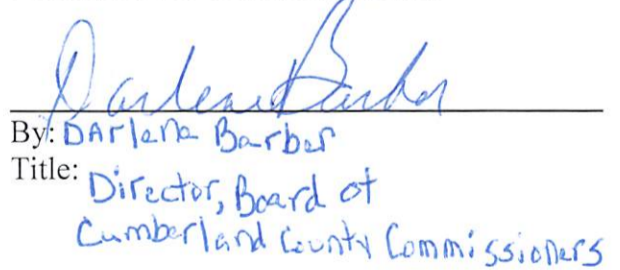 Darlene Barber
By: DArlene Barber
Title:
Director, Board of
Cumberland County Commissioners